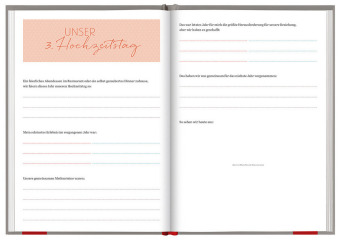 UNSER
3. Hochzeitstag
Ein köstliches Abendessen im Restaurant oder ein selbst gemachtes Dinner zuhause,
wir feiern diesen Tag unseren Hochzeitstag so:
Mein schönstes Erlebnis im vergangenen Jahr war:
Unsere gemeinsamen Meilensteine waren:
Das war dieses Jahr für mich die größte Herausforderung für unsere Beziehung,
aber wir haben es geschafft:
Das haben wir uns gemeinsam für das nächste Jahr vorgenommen:
So sehen wir heute aus: